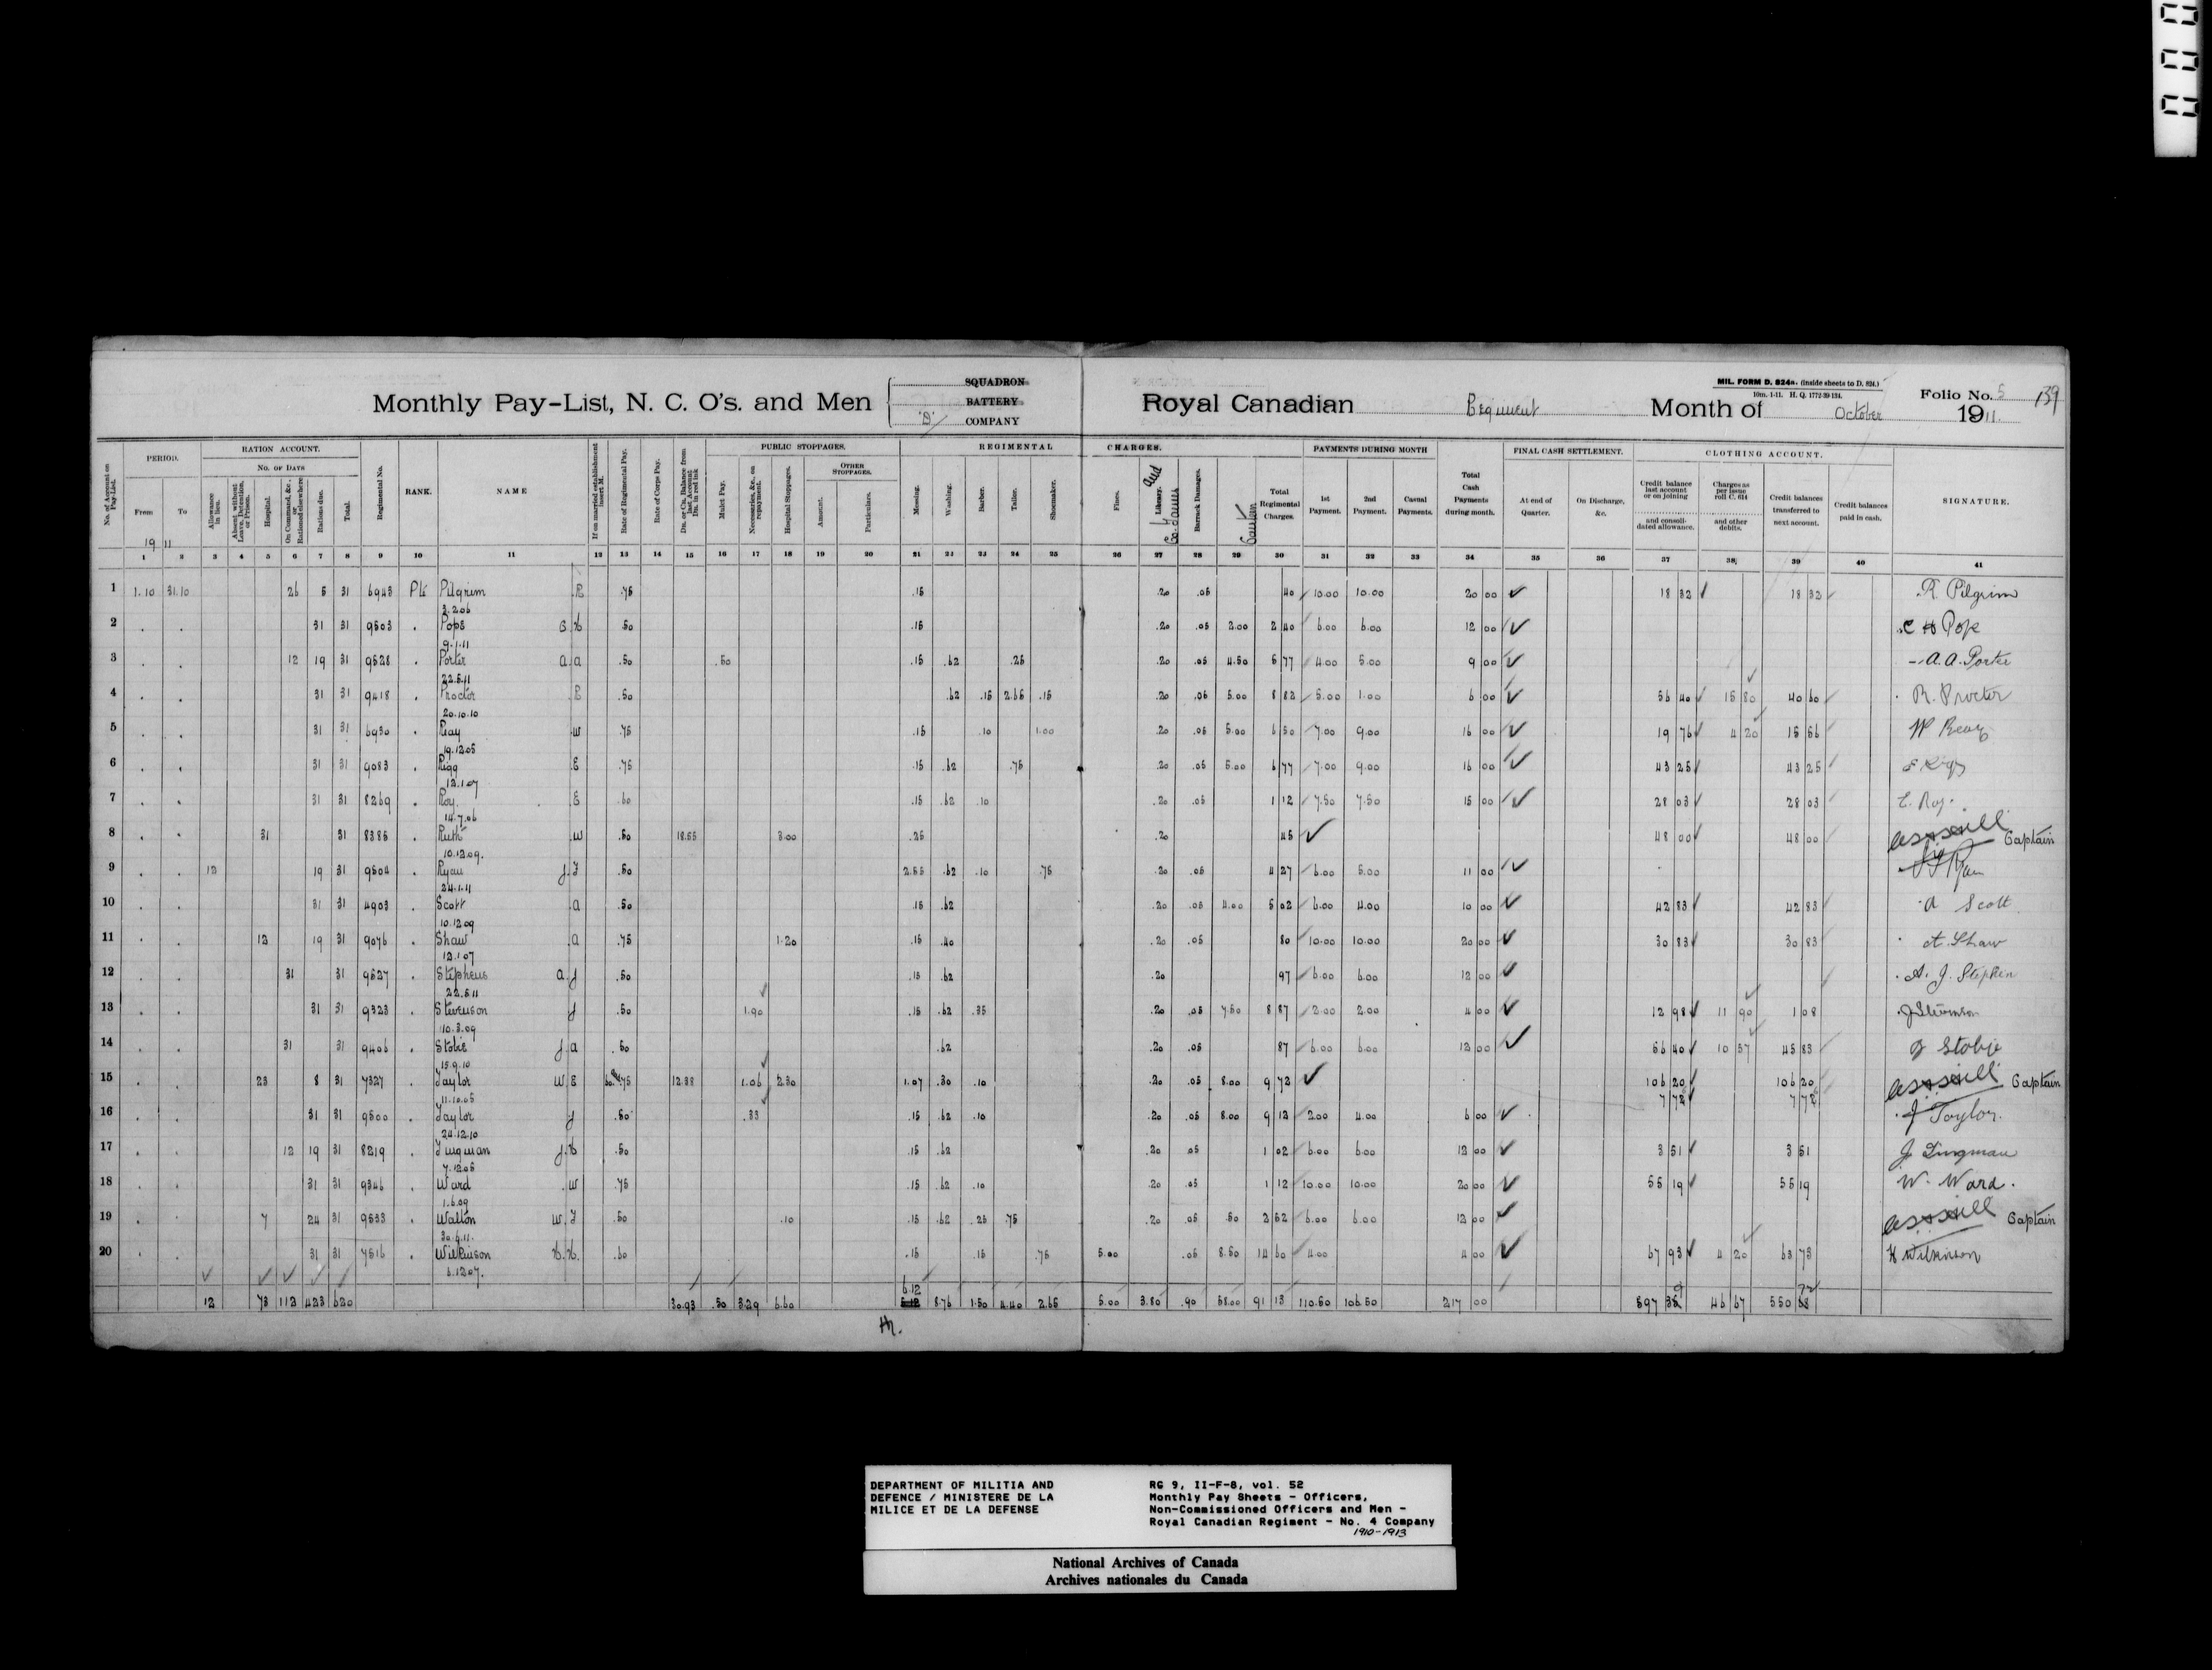 MIL. FORM D. 824a. (inside sheets to D. 824.)
10m. 1-11. H. Q. 1772-39-134.
Monthly Pay-List, N. C. O's. and Men
SQUADRON
BATTERY
'D' COMPANY
Royal Canadian Regiment
Month of October 1911.
Folio No. 5
139
No. of Account on Pay-List.
PERIOD.
From To
1911
RATION ACCOUNT.
No. of Days
Allowance in lieu.
Absent without Leave, Detention, or Prison.
Hospital.
On Command, &c., or Rationed elsewhere
Rations due.
Total.
Regimental No.
RANK.
NAME
If on married establishment insert M.
Rate of Regimental Pay.
Rate of Corps Pay.
Dr. or Cr. Balance from last Account Dr. in red ink
PUBLIC STOPPAGES.
Mulct Pay.
Necessaries, &c., on repayment.
Hospital Stoppages.
OTHER STOPPAGES.
Amount.
Particulars.
REGIMENTAL CHARGES.
Messing.
Washing.
Barber.
Tailor.
Shoemaker.
Fines.
Library. and Co. Games
Barrack Damages.
Canteen
Total Regimental Charges.
PAYMENTS DURING MONTH
1st Payment.
2nd Payment.
Casual Payments.
Total Cash Payments during month.
FINAL CASH SETTLEMENT.
At end of Quarter.
On Discharge, &c.
CLOTHING ACCOUNT.
Credit balance last account or on joining and consolidated allowance.
Charges as per issue roll C. 614 and other debits.
Credit balances transferred to next account.
Credit balances paid in cash.
SIGNATURE.
1 2 3 4 5 6 7 8 9 10 11 12 13 14 15 16 17 18 19 20 21 22 23 24 25 26 27 28 29 30 31 32 33 34 35 36 37 38 39 40 41
1 1.10 31.10 26 5 31 6943 Pte Pilgrim R .75 .15 .20 .05 40 10.00 10.00 20 00 18 32 18 32 R. Pilgrim
3.2.06
2 31 31 9503 Pope C H .50 .15 .20 .05 2.00 2 40 6.00 6.00 12 00 C H Pope
9.1.11
3 12 19 31 9528 Porter A.A .50 .50 .15 .62 .25 .20 .05 4.50 5 77 4.00 5.00 9 00 A.A. Porter
22.5.11
4 31 31 9418 Proctor R .50 .62 .15 2.65 .15 .20 .05 5.00 8 82 5.00 1.00 6 00 56 40 15 80 40 60 R. Proctor
20.10.10
5 31 31 6930 Reay W .75 .15 .10 1.00 .20 .05 5.00 6 50 7.00 9.00 16 00 19 76 4 20 15 56 W Reay
19.12.05
6 31 31 9083 Rigg E .75 .15 .62 .75 .20 .05 5.00 6 77 7.00 9.00 16 00 43 25 43 25 E Rigg
12.1.07
7 31 31 8269 Roy E .60 .15 .62 .10 .20 .05 1 12 7.50 7.50 15 00 28 03 28 03 E. Roy.
14.7.06
8 31 31 8385 Ruth W .50 18.55 3.00 .25 .20 45 48 00 48 00 Captain
10.12.09.
9 12 19 31 9504 Ryan J.F .50 2.55 .62 .10 .75 .20 .05 4 27 6.00 5.00 11 00 J F Ryan
24.1.11
10 31 31 4903 Scott A .50 .15 .62 .20 .05 4.00 5 02 6.00 4.00 10 00 42 83 42 83 A Scott
10.12.09
11 12 19 31 9076 Shaw A .75 1.20 .15 .40 .20 .05 80 10.00 10.00 20 00 30 83 30 83 A. Shaw
12.1.07
12 31 31 9527 Stephens A J .50 .15 .62 .20 97 6.00 6.00 12 00 A. J. Stephen
22.5.11
13 31 31 9323 Stevenson J .50 1.90 .15 .62 .35 .20 .05 7.50 8 87 2.00 2.00 4 00 12 98 11 90 1 08
10.3.09
14 31 31 9406 Stobie J.A .50 .62 .20 .05 87 6.00 6.00 12 00 56 40 10 57 45 83 J Stobie
15.9.10
15 23 8 31 7327 Taylor W E .75 12.38 1.06 2.30 1.07 .30 .10 .20 .05 8.00 9 72 106 20 106 20 Captain
11.10.05
16 31 31 9500 Taylor J .50 .33 .15 .62 .10 .20 .05 8.00 9 12 2.00 4.00 6 00 7 72 7 72 J Taylor.
24.12.10
17 12 19 31 8219 Tingman J.H .50 .15 .62 .20 .05 1 02 6.00 6.00 12 00 3 51 3 51 J. Tingman
7.12.05
18 31 31 9346 Ward W .75 .15 .62 .10 .20 .05 1 12 10.00 10.00 20 00 55 19 55 19 W. Ward.
1.6.09
19 7 24 31 9533 Walton W.F .50 .10 .15 .62 .25 .75 .20 .05 .50 2 52 6.00 6.00 12 00 Captain
30.6.11.
20 31 31 7516 Wilkinson H.H. .60 .15 .15 .75 5.00 .05 8.50 14 60 4.00 4 00 67 93 4 20 63 73 H Wilkinson
6.12.07.
12 73 112 423 620 30.93 .50 3.29 6.60 6.12 8.76 1.50 4.40 2.65 5.00 3.80 .90 58.00 91 13 110.50 106.50 217 00 597 46 67 550
DEPARTMENT OF MILITIA AND
DEFENCE / MINISTERE DE LA
MILICE ET DE LA DEFENSE
RG 9, II-F-8, vol. 52
Monthly Pay Sheets - Officers,
Non-Commissioned Officers and Men -
Royal Canadian Regiment - No. 4 Company
1910-1913
National Archives of Canada
Archives nationales du Canada